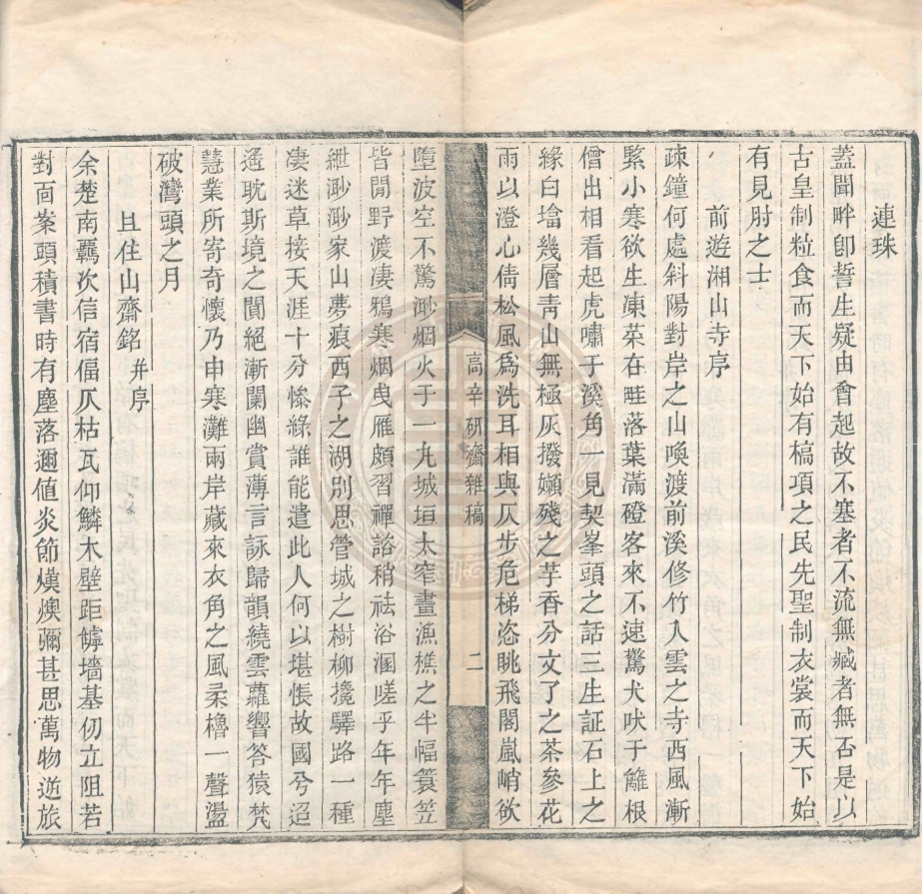 連珠
蓋聞畔卽誓生疑由會起故不塞者不流無臧者無否是以
古皇制粒食而天下始有槁項之民先聖制衣裳而天下始
有見肘之士
前遊湘山寺序
疎鐘何處斜陽對岸之山喚渡前溪修竹入雲之寺西風漸
緊小寒欲生凍菜在畦落葉滿磴客來不速驚犬吠于籬根
僧出相看起虎嘯于溪角一見契峯頭之話三生証石上之
緣白墖幾層靑山無極灰撥嬾殘之芋香分文了之茶參花
雨以澄心倩松風爲洗耳相與仄步危梯恣眺飛閣嵐峭欲
高辛硏齋雜稿
二
墮波空不驚渺烟火于一九城垣太窄畫漁樵之半幅簑笠
皆閒野渡淒鴉寒烟曳雁頗習禪諮稍祛浴溷嗟乎年年塵
紲渺渺家山夢痕西子之湖別思管城之樹柳攙驛路一種
凄迷草接天涯十分慘綠誰能遣此人何以堪悵故國兮迢
遥耽斯境之闃絕漸闌幽賞薄言詠歸韻繞雲蘿響答猿梵
慧業所寄奇懷乃申寒灘兩岸藏來衣角之風柔櫓一聲盪
破灣頭之月
且住山齋銘 并序
余楚南羈次信宿偪仄枯瓦仰鱗木壁距罅墻基仞立阻若
對面峯頭積書時有塵落邇值炎節熯燠彌甚思萬物逆旅